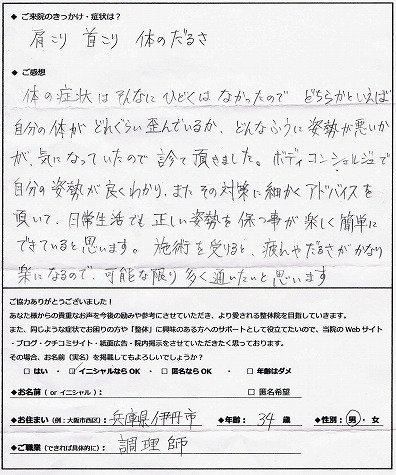 ◆ ご来院のきっかけ・症状は?
肩こり 首こり 体のだるさ
◆ ご感想
体の症状はそんなにひどくはなかったので どちらかといえば
自分の体が どれぐらい歪んでいるか、どんなふうに姿勢が悪いか
が、気になっていたので 診て頂きました。ボディコンシェルジュで
自分の姿勢が良くわかり、またその対策に細かくアドバイスを
頂いて、日常生活でも正しい姿勢を保つ事が楽しく簡単に
できていると思います。施術を受けると、疲れやだるさがかなり
楽になるので、可能な限り多く通いたいと思います
ご協力ありがとうございました!
あなた様からの貴重なお声を今後の励みや参考にさせていただき、より愛される整体院を目指していきます。
また、同じような症状でお困りの方や「整体」に興味のある方へのサポートとして役立てたいので、当院のWebサイト
・ブログ・クチコミサイト・紙面広告・院内掲示をさせていただきたく思っております。
その場合、お名前(実名)を掲載してもよろしいでしょうか?
□ はい ・ □ イニシャルならOK ・ □ 匿名ならOK ・ □ 年齢はダメ
◆お名前(or イニシャル): □ 匿名希望
◆お住まい(例:大阪市西区): 兵庫県伊丹市 ◆年齢: 34 歳 ◆性別: 男・女
◆ご職業(できれば具体的に): 調理師